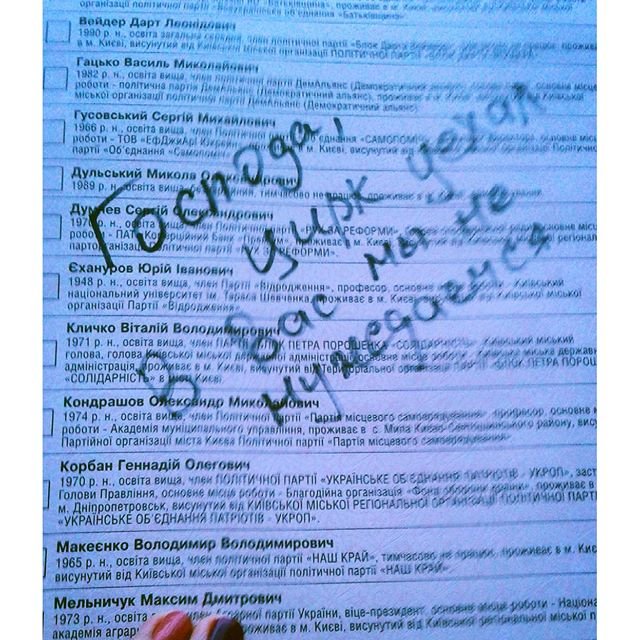 організації політичної партії
об'єднання «Батьківщина».
Вейдер Дарт Леонідович
1990 р. н., освіта загальна середня, член політичної партії «Блок Дарта
в м. Києві, висунутий від Київської міської організації ПОЛІТИЧНОЇ ПАРТІЇ
Гацько Василь Миколайович
1982 р. н., освіта вища, член політичної партії ДемАльянс (Демократичний альянс), основне місце
роботи - політична партія ДемАльянс (Демократичний альянс), проживає в м. Києві, висунутий від Київської
міської організації політичної партії ДемАльянс (Демократичний альянс).
Гусовський Сергій Михайлович
1966 р. н., освіта вища, член
роботи - ТОВ «ЕфДжиАрі в м. Києві, висунутий від
партії «Об'єднання «Самопоміч»
Господа, цирк уехал
Дульський Микола
1989 р. н., освіта вища, тимчасово не працює, проживає в
Думчев Сергій Олександрович
РУХ ЗА РЕФОРМИ»,
роботи - ПАТ проживає в м. Києві,
парторганізації РЕФОРМИ».
В вас мы не
нуждаемся
Єхануров Юрій Іванович
1948 р. н., освіта вища, член Партії «Відродження», професор, основне місце роботи - Київський
національний університет ім. Тараса Шевченка, проживає в м. Києві, висунутий від Київської міської
організації Партії «Відродження».
Кличко Віталій Володимирович
1971 р. н., освіта вища, член ПАРТІЇ ПЕТРА ПОРОШЕНКА «СОЛІДАРНІСТЬ», Київський міський
голова, голова Київської міської державної адміністрації, основне місце роботи - Київська міська державна
адміністрація, проживає в м. Києві, висунутий від Територіальної організації ПЕТРА ПОРОШ
«СОЛІДАРНІСТЬ» в м. Києві.
Кондрашов Олександр Миколайович
1974 р. н., освіта вища, член політичної партії «Партія місцевого самоврядування», професор, основне м
роботи - Академія муніципального управління, проживає в с. Мила Києво-Святошинського району, вису
Партійної організації міста Києва Політичної партії «Партія місцевого самоврядування».
Корбан Геннадій Олегович
1970 р. н., освіта вища, член ПОЛІТИЧНОЇ ПАРТІЇ «УКРАЇНСЬКЕ ОБ'ЄДНАННЯ ПАТРІОТІВ - УКРОП», заст
Голови Правління, основне місце роботи - Благодійна організація «Фонд оборони країни», проживає в
м. Дніпропетровськ, висунутий від КИЇВСЬКОЇ МІСЬКОЇ РЕГІОНАЛЬНОЇ ОРГАНІЗАЦІЇ ПОЛІТИЧНОЇ ПАРТІ
«УКРАЇНСЬКЕ ОБ'ЄДНАННЯ ПАТРІОТІВ - УКРОП».
Макеєнко Володимир Володимирович
1965 р. н., освіта вища, член політичної партії «НАШ КРАЙ», тимчасово не працює, проживає в м. Киє
висунутий від Київської міської організації політичної партії «НАШ КРАЙ».
Мельничук Максим Дмитрович
1973 р. н., освіта вища, член Аграрної партії України, віце-президент, основне місце роботи - Націона
академія аграр проживає в м. Києві, висунутий від Київської міської організації